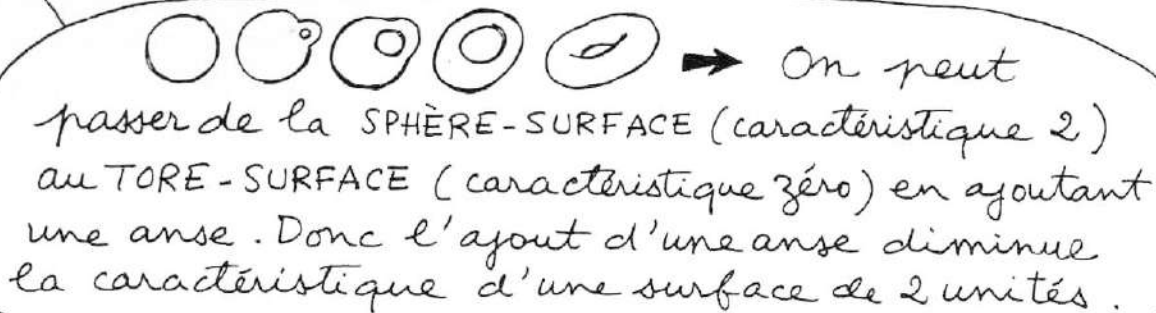 On peut
passer de la SPHÈRE-SURFACE (caractéristique 2)
au TORE-SURFACE (caractéristique zéro) en ajoutant
une anse. Donc l'ajout d'une anse diminue
la caractéristique d'une surface de 2 unités.